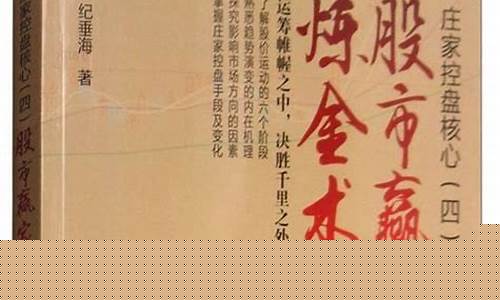 庄家控盘核心(四)
股市赢
炼金术
运筹帷幄之中，决胜千里之外
了解股价运动的六个阶段
熟悉趋势演变的内在机理
探究影响市场方向的因素
掌握庄家控盘手段及变化
纪垂海 著
家控盘核心(四) 股市赢家